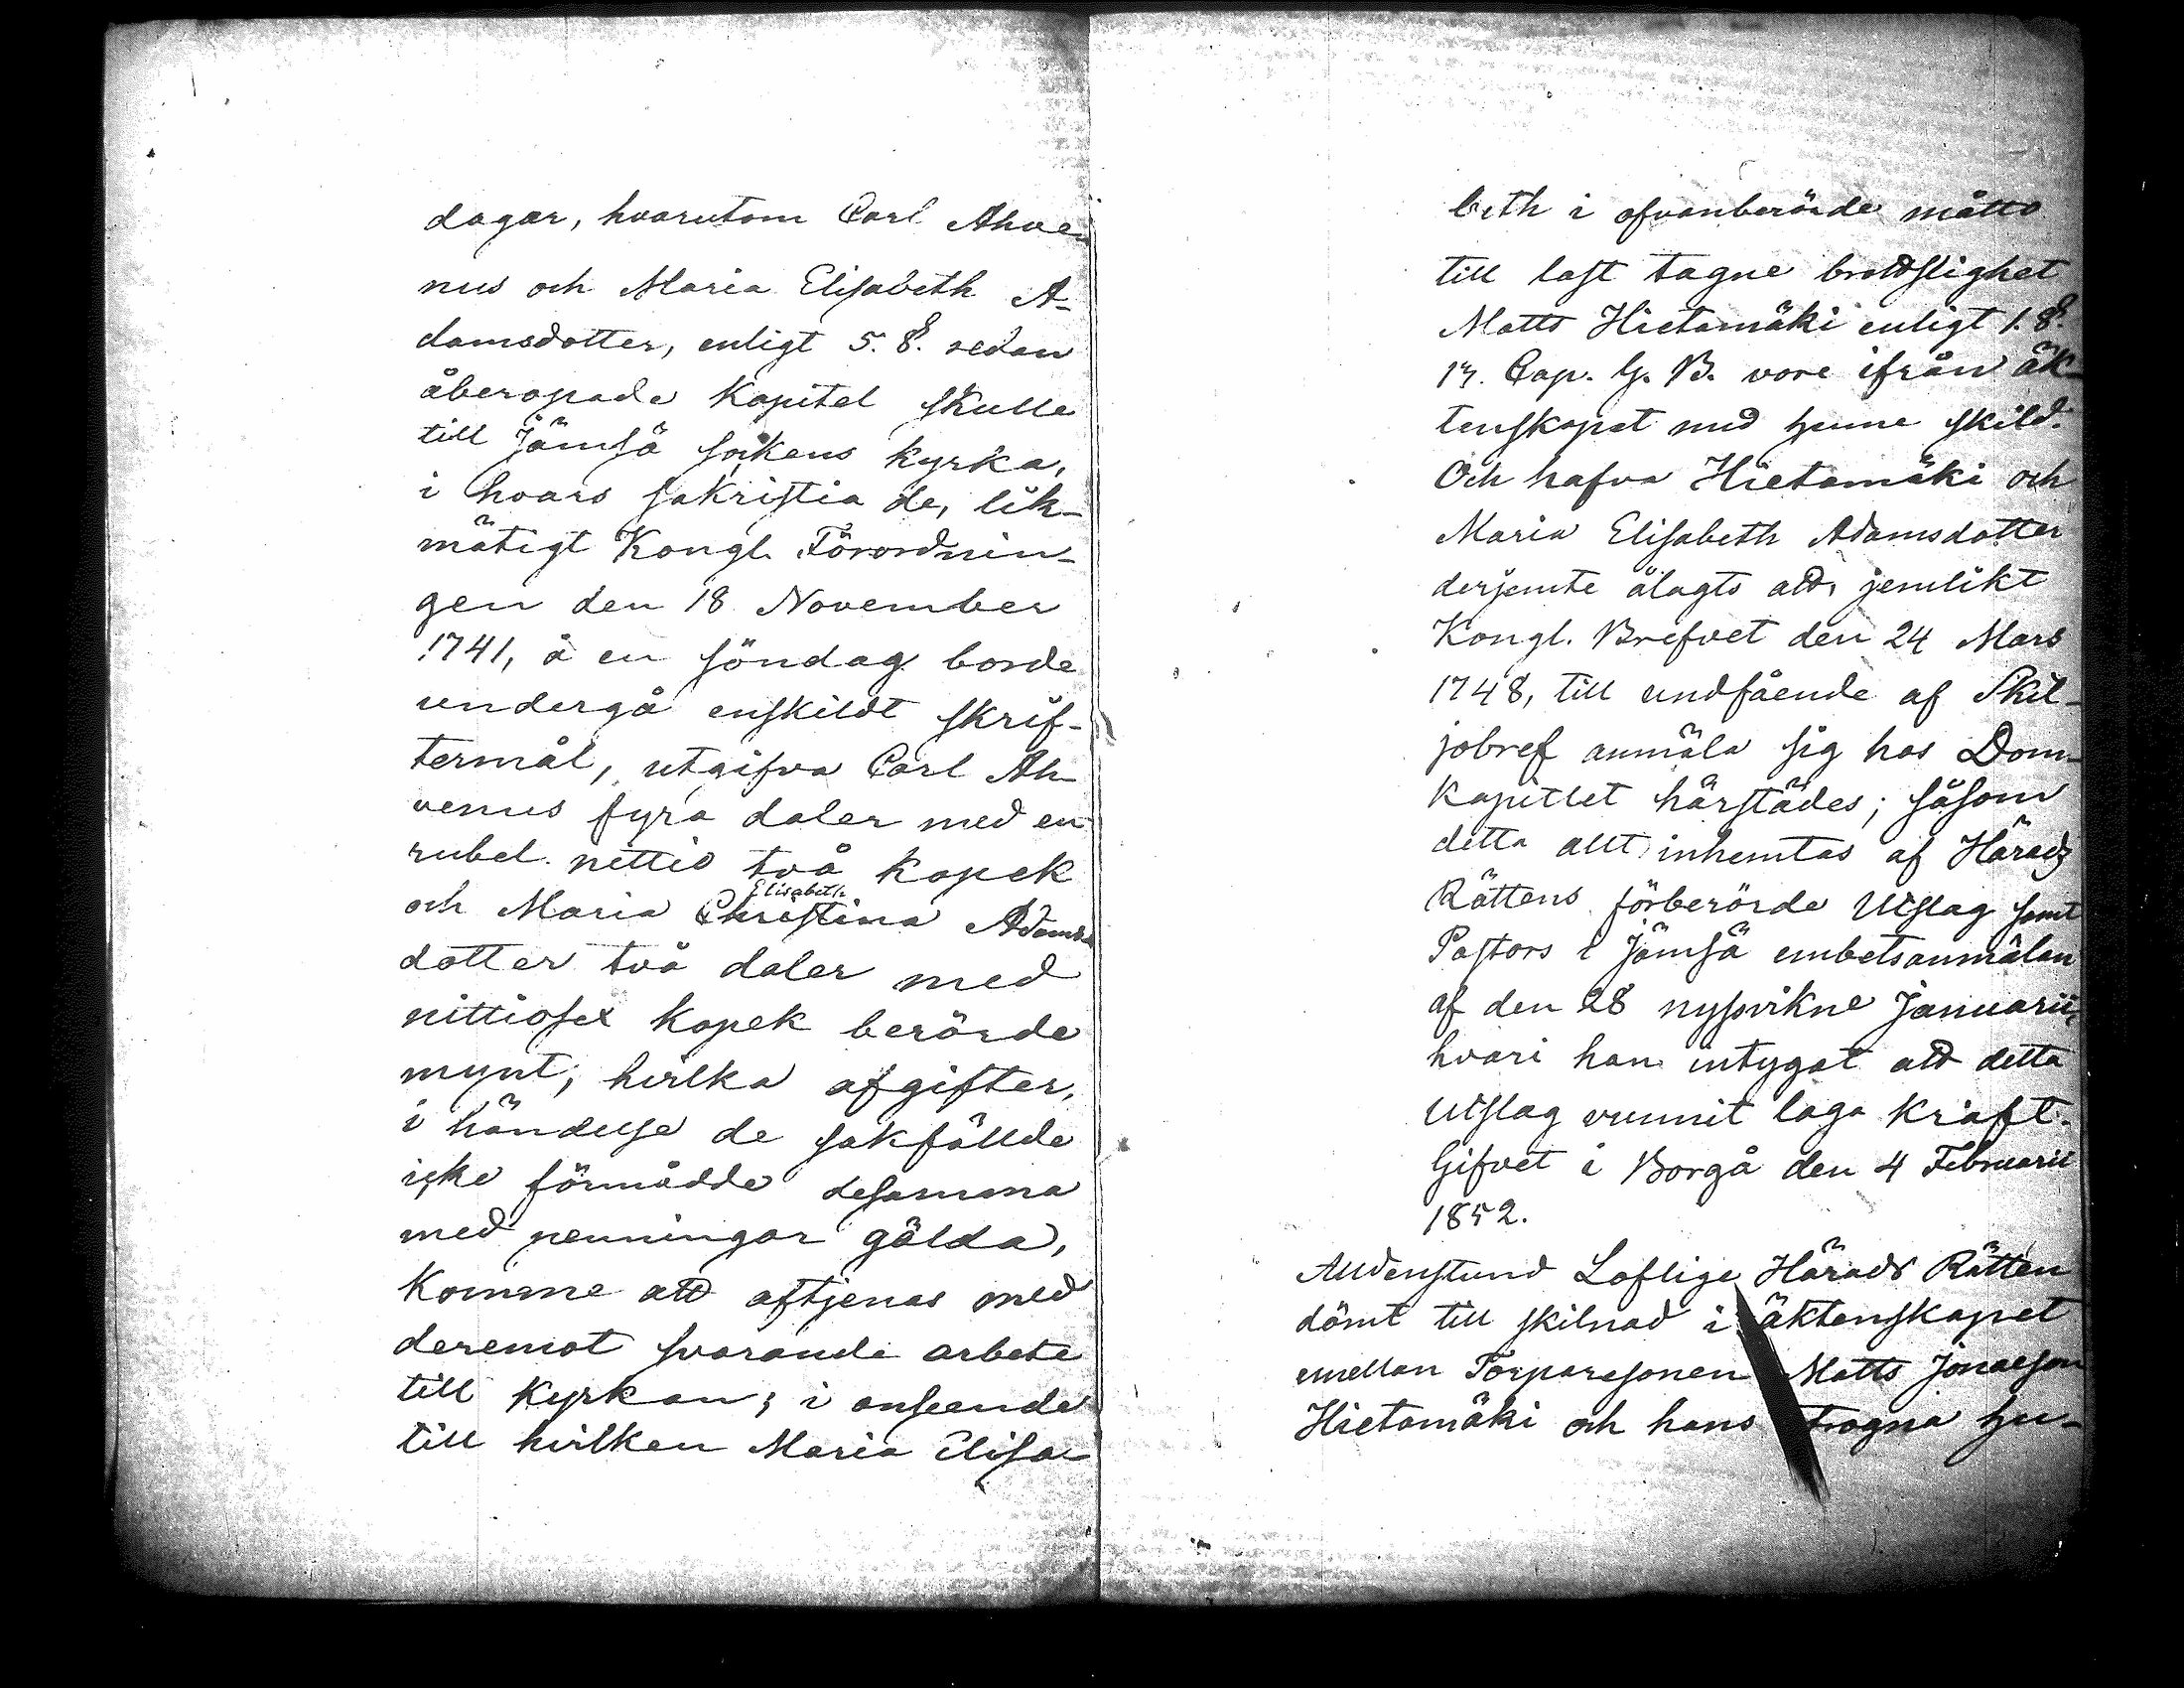 dagar, hvarutom Carl Ahve
nus och Maria Elisabeth A-
damsdotter, enligt 5. §. sedan
åberopade Kapitel skulle
till Jämsä sokens kyrka,
i hvars sakristia de, lik-
mätigt Kongl. Förordnin-
gen den 18 November
1741, å en söndag borde
undergå enskildt skrif-
termål, utgifva Carl Ah-
venus fyra daler med en
rubel nittio två kopek
och Maria Christina Elisabeth Adams-
dotter två daler med
nittiosex kopek berörde
mynt; hvilka afgifter,
i händelse de sakfällde
icke förmådde desamma
med penningar gälda,
Komme att aftjenas med
deremot svarande arbete
till Kyrkan; i anseende
till hvilken Maria Elisa-
beth i ofvanberörde måtto
till last tagne brottslighet
Matts Hietamäki enligt 1. §.
13. Cap. G. B. vore ifrån äk-
tenskapet med henne skild.
Och hafva Hietamäki och
Maria Elisabeth Adamsdotter
derjemte ålagts att, jemlikt
Kongl. Brefvet den 24 Mars
1748, till undfående af Skil-
jobref anmäla sig hos Dom-
kapitlet härstädes; såsom
detta allt inhemtas af Härads
Rättens förberörde Utslag samt
Pastors i Jämsä embetsanmälan
af den 28 nyssvikne Januarii,
hvari han intygat att detta
Utslag vunnit laga kraft.
Gifvet i Borgå den 4 Februarii
1852.
Alldenstund Loflige Härads Rätten
dömt till skilnad i äktenskapet
emellan Torparesonen Matts Jonaeson
Hietamäki och hans trogna hu-